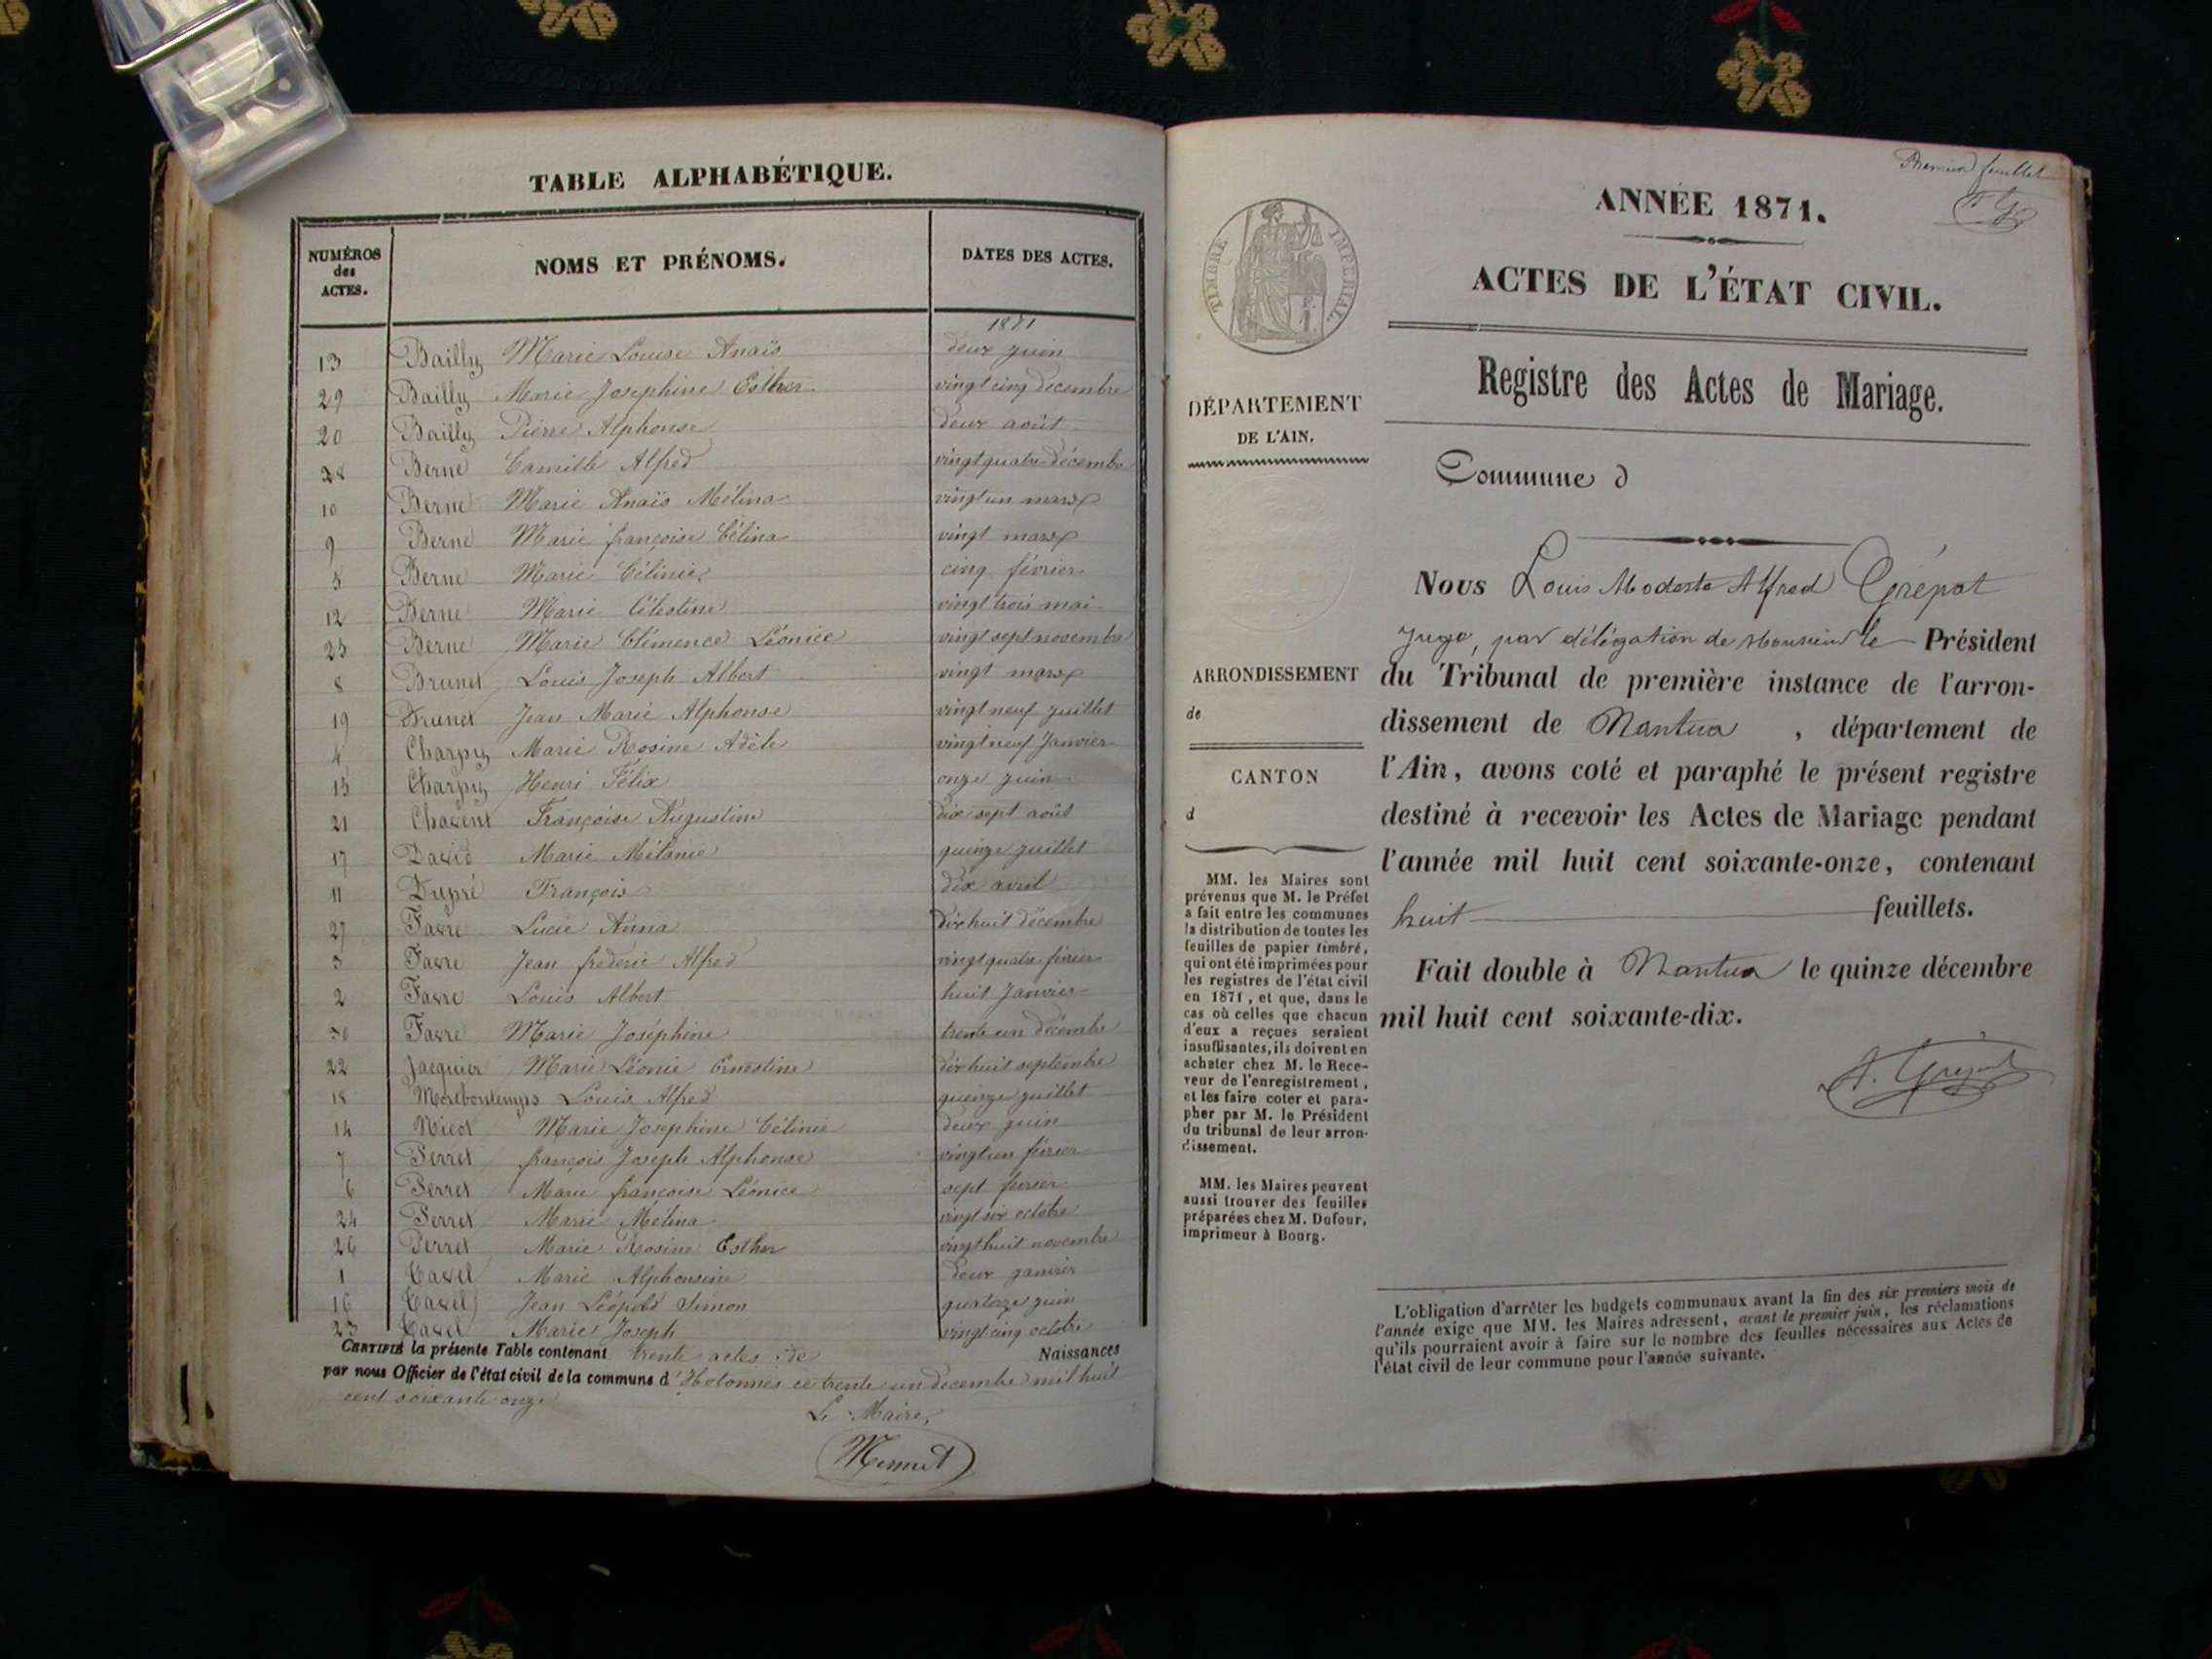 TABLE ALPHABÉTIQUE.
NUMÉROS des ACTES. NOMS ET PRÉNOMS. DATES DES ACTES.
1871
13 Bailly Marie Louise Anaïs deux juin
29 Bailly Marie Josephine Esther vingt cinq décembre
20 Bailly Pierre Alphonse deux août
28 Berne Camille Alfred vingt quatre décembre
10 Berne Marie Anaïs Mélina vingt un mars
9 Berne Marie françoise Célina vingt mars
5 Berne Marie Célinie cinq février
12 Berne Marie Célestine vingt trois mai
25 Berne Marie Clémence Léonice vingt sept novembre
8 Brunet Louis Joseph Albert vingt mars
19 Brunet Jean Marie Alphonse vingt neuf juillet
4 Charpy Marie Rosine Adèle vingt neuf Janvier
15 Charpy Henri Félix onze juin
21 Chavent Françoise Augustine dix sept août
17 David Marie Mélanie quinze juillet
11 Dupré François dix avril
27 Favre Lucie Anna dix huit décembre
3 Favre Jean frédéric Alfred vingt quatre février
2 Favre Louis Albert huit Janvier
30 Favre Marie Joséphine trente un décembre
22 Jacquier Marie Léonie Ernestine dix huit septembre
18 Montbontemps Louis Alfred quinze juillet
14 Nicot Marie Josephine Célinie deux juin
7 Perret françois Joseph Alphonse vingt un février
6 Perret Marie françoise Léonice sept février
24 Perret Marie Mélina vingt six octobre
26 Perret Marie Rosine Esther vingt huit novembre
1 Tavel Marie Alphonsine deux janvier
16 Tavel Jean Léopold Simon quatorze juin
23 Tavel Marie Joseph vingt cinq octobre
CERTIFIÉ la présente Table contenant trente actes de Naissances
par nous Officier de l'état civil de la commune d'Hotonnes ce trente un decembre mil huit
cent soixante onze
Le Maire,
Premier feuillet
ANNÉE 1871.
ACTES DE L'ÉTAT CIVIL.
Registre des Actes de Mariage.
TIMBRE IMPÉRIAL.
DÉPARTEMENT
DE L'AIN.
ARRONDISSEMENT
de
CANTON
d
MM. les Maires sont
prévenus que M. le Préfet
a fait entre les communes
la distribution de toutes les
feuilles de papier timbré,
qui ont été imprimées pour
les registres de l'état civil
en 1871, et que, dans le
cas où celles que chacun
d'eux a reçues seraient
insuffisantes, ils doivent en
acheter chez M. le Rece-
veur de l'enregistrement,
et les faire coter et para-
pher par M. le Président
du tribunal de leur arron-
dissement.
MM. les Maires peuvent
aussi trouver des feuilles
préparées chez M. Dufour,
imprimeur à Bourg.
Commune d
Nous Louis Modeste Alfred Grépat
juge, par délégation de Monsieur le Président
du Tribunal de première instance de l'arron-
dissement de Nantua, département de
l'Ain, avons coté et paraphé le présent registre
destiné à recevoir les Actes de Mariage pendant
l'année mil huit cent soixante-onze, contenant
huit feuillets.
Fait double à Nantua le quinze décembre
mil huit cent soixante-dix.
L'obligation d'arrêter les budgets communaux avant la fin des six premiers mois de
l'année exige que MM. les Maires adressent, avant le premier juin, les réclamations
qu'ils pourraient avoir à faire sur le nombre des feuilles nécessaires aux Actes de
l'état civil de leur commune pour l'année suivante.